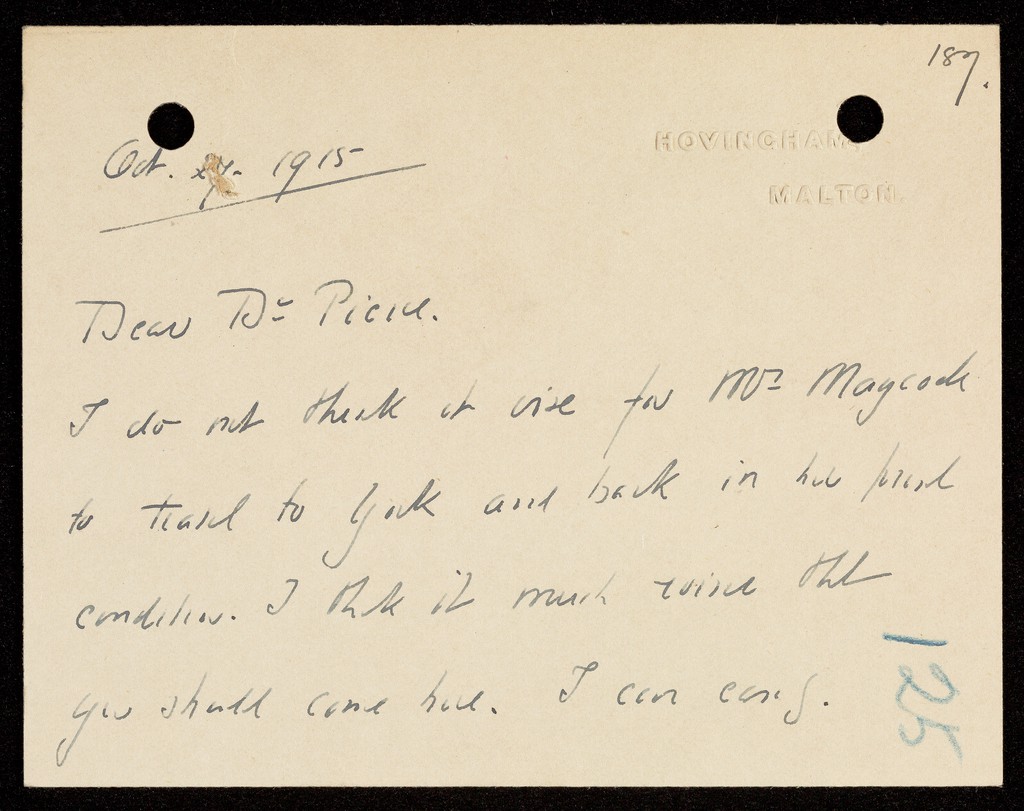 187.
HOVINGHAM,
MALTON.
Oct. 27. 1915
Dear Dr. Pierce.
I do not think it wise for Mrs Maycock
to travel to York and back in her present
condition. I think it much wiser that
you should come here. I can easily.
125